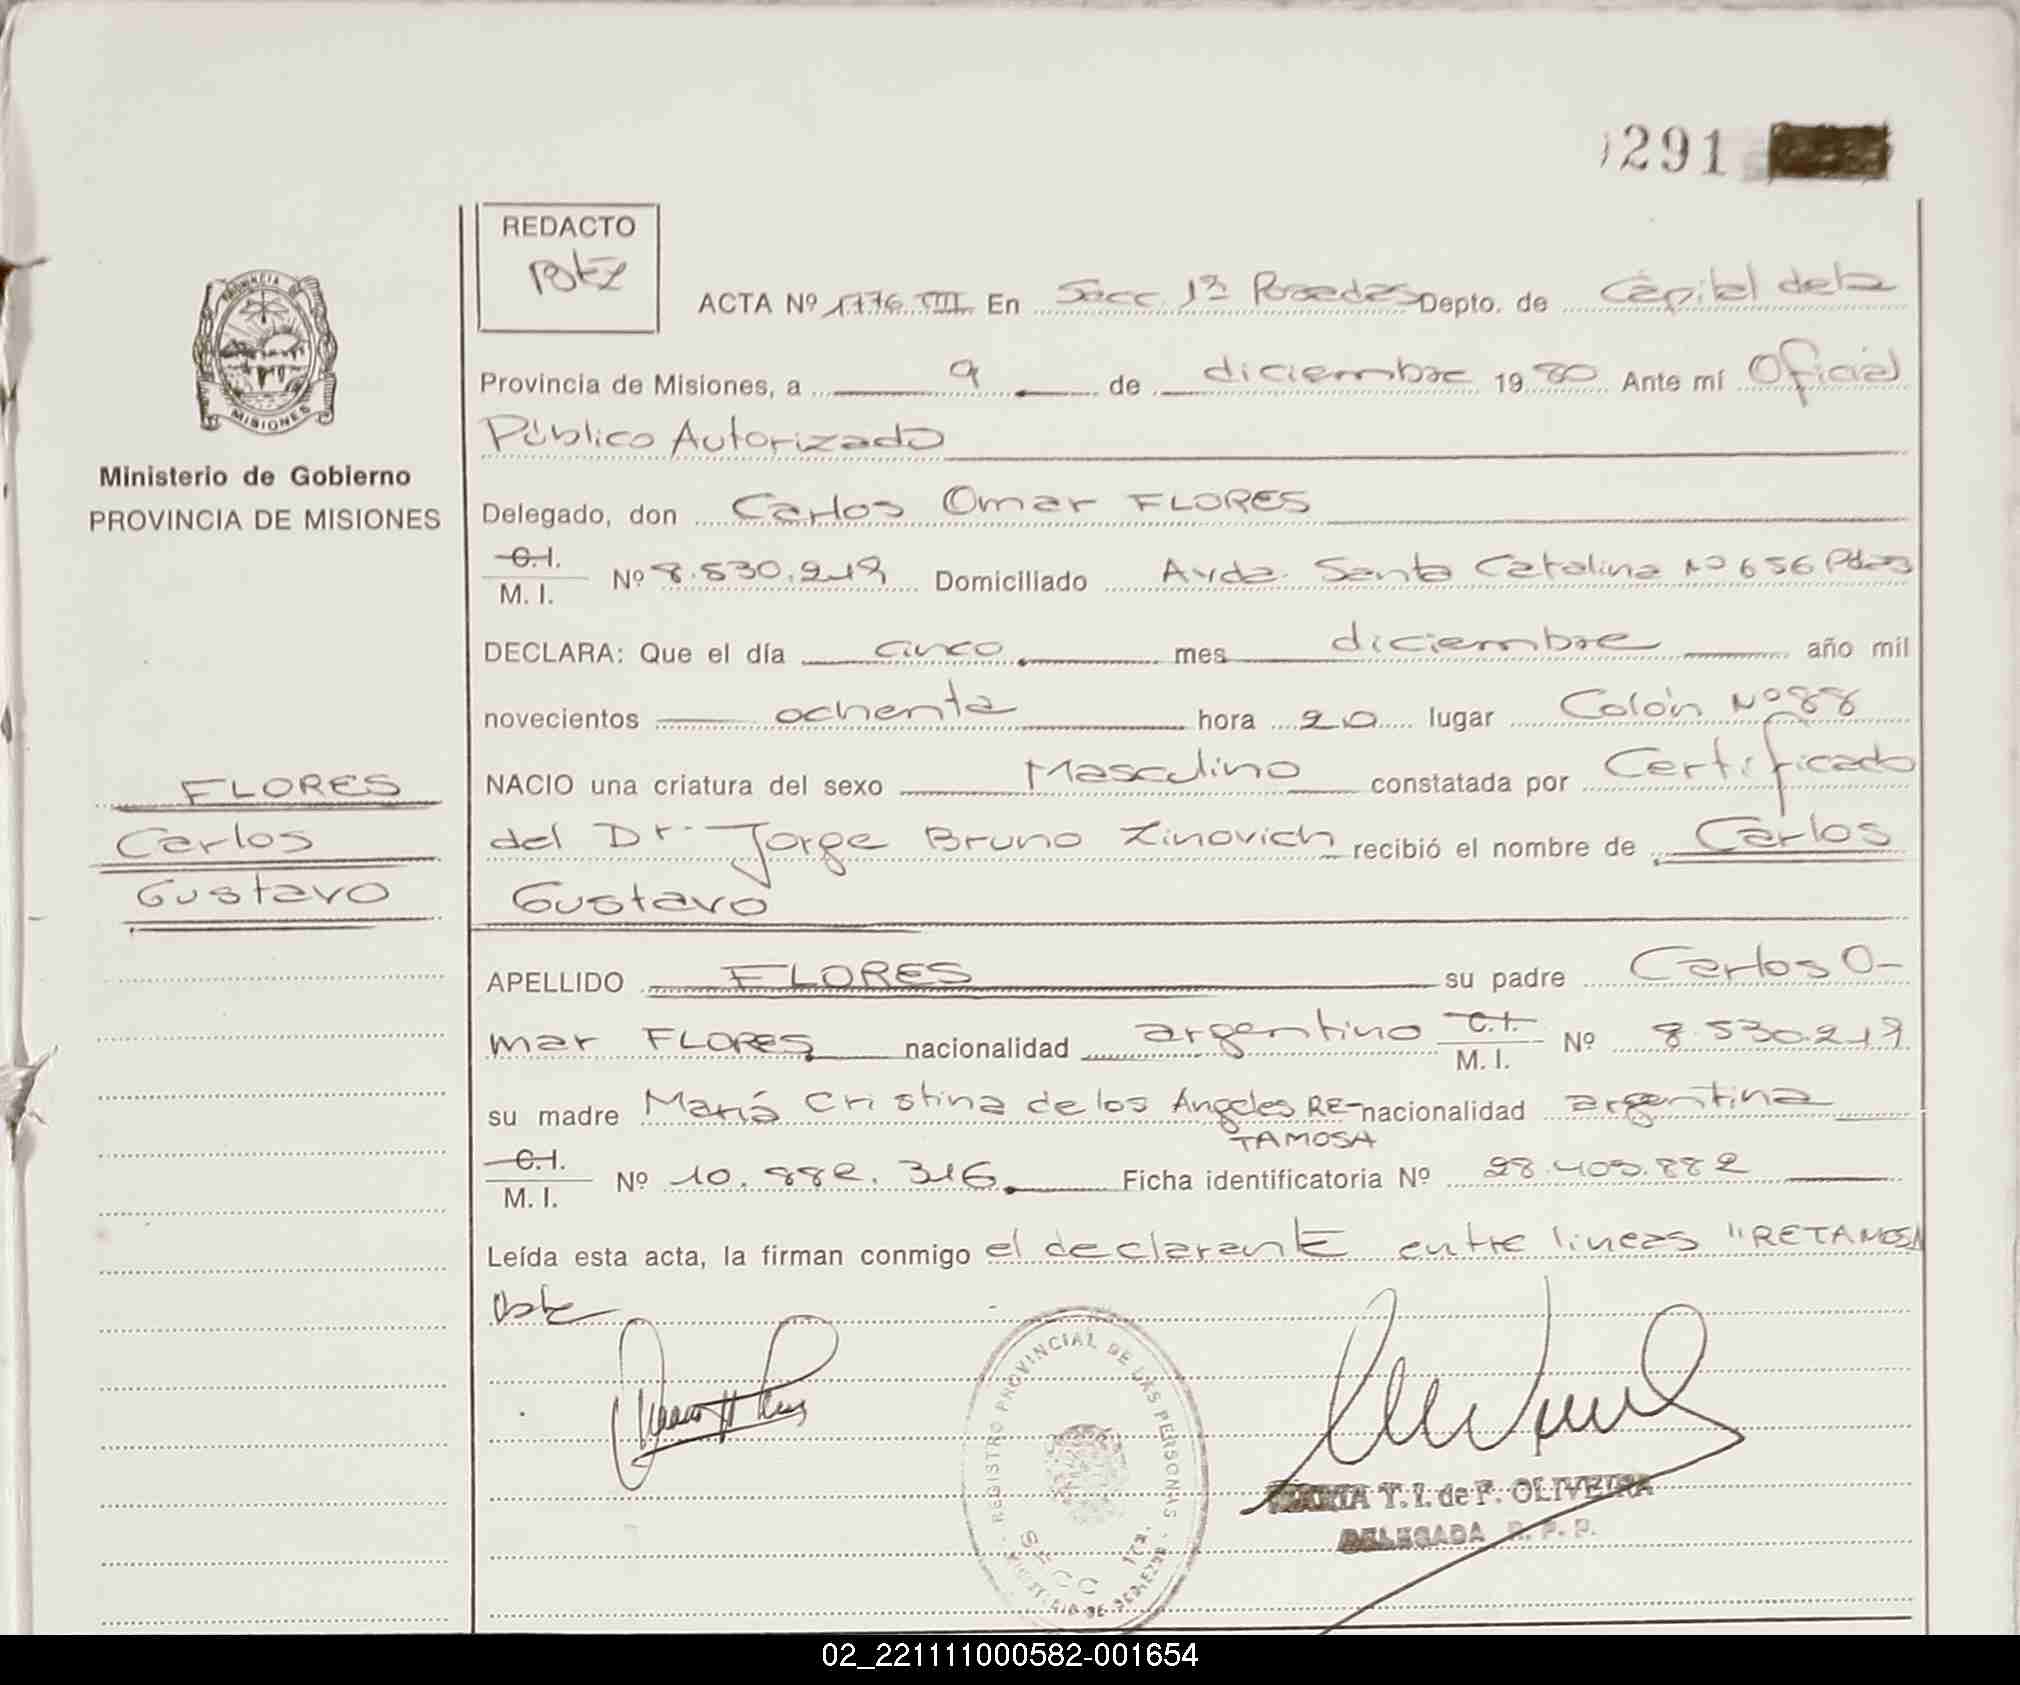 291
REDACTO
ACTA Nº 1776 VIII En Secc. 1ª Posadas Depto. de Capital de la
Provincia de Misiones, a 9 de diciembre 1980 Ante mí Oficial
Público Autorizado
Ministerio de Gobierno
PROVINCIA DE MISIONES
Delegado, don Carlos Omar FLORES
C.I.
M. I. Nº 8.530.219 Domiciliado Avda. Santa Catalina Nº 656 Pdas
DECLARA: Que el día cinco mes diciembre año mil
novecientos ochenta hora 20 lugar Colón Nº 88
FLORES
Carlos
Gustavo
NACIO una criatura del sexo Masculino constatada por Certificado
del Dr. Jorge Bruno Zinovich recibió el nombre de Carlos
Gustavo
APELLIDO FLORES su padre Carlos O-
mar FLORES nacionalidad argentino C.I. M. I. Nº 8.530.219
su madre María Cristina de los Angeles RE- nacionalidad argentina
TAMOSA
C.I.
M. I. Nº 10.882.316 Ficha identificatoria Nº 28.409.882
Leída esta acta, la firman conmigo el declarante entre lineas "RETAMOSA
Vale
REGISTRO PROVINCIAL DE LAS PERSONAS
SECC 1RA.
MARIA T. I. de F. OLIVEIRA
DELEGADA R. P. P.
02_221111000582-001654